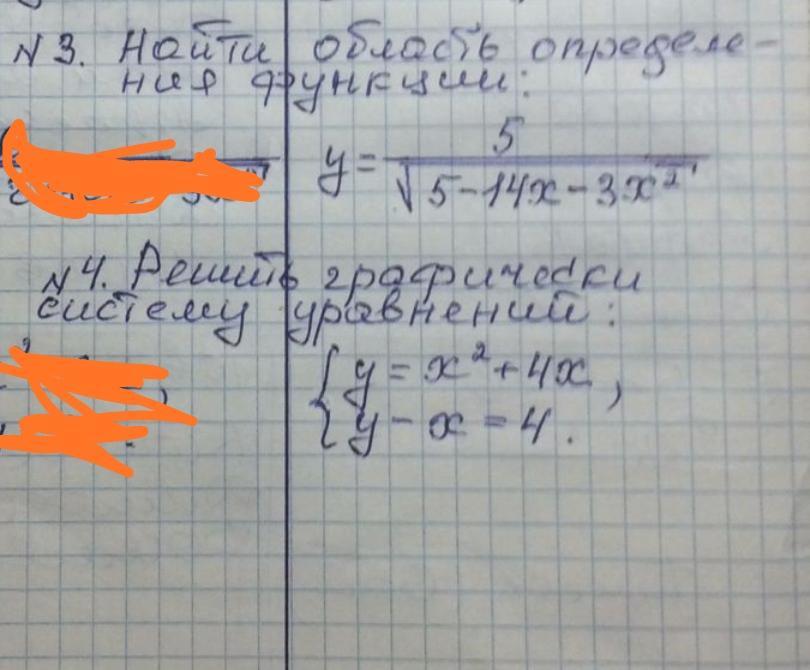 N3. Найти область определе-
ния функции:
y = 5 / √5-14x-3x²
N4. Решить графически
систему уравнений:
{ y = x² + 4x,
y - x = 4.